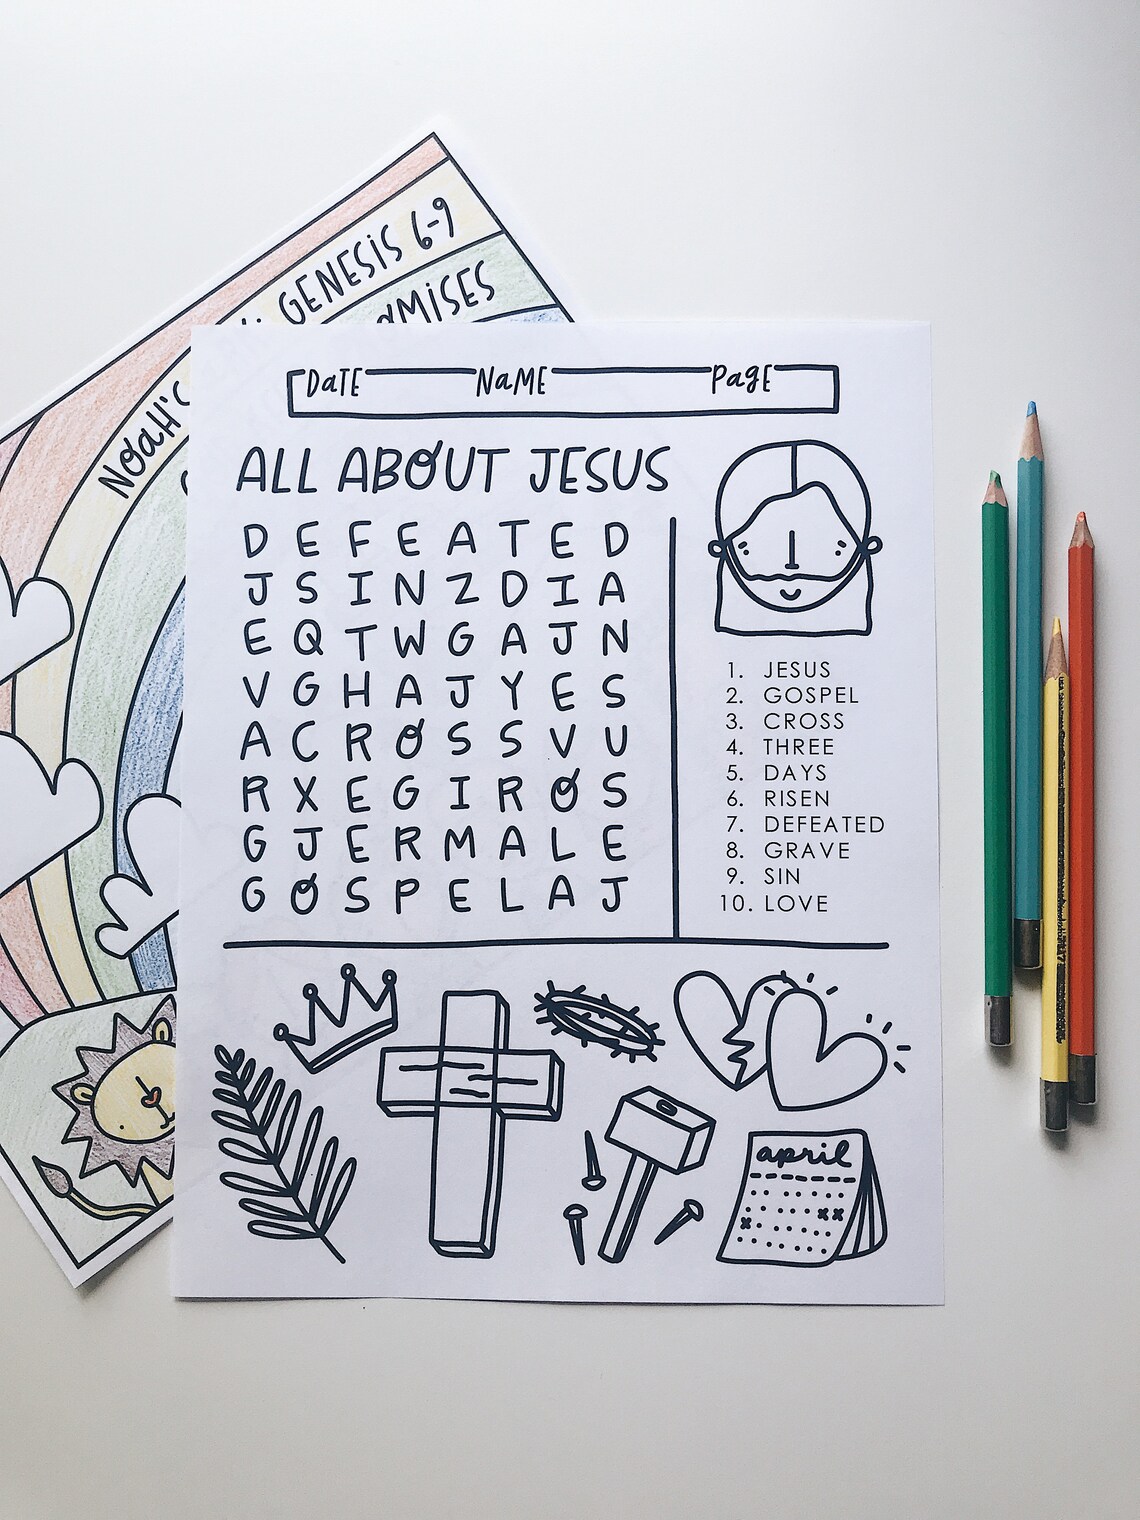 GENESIS 6-9
NOAH'S
DATE NAME PAGE
ALL ABOUT JESUS
D E F E A T E D
J S I N Z D I A
E Q T W G A J N
V G H A J Y E S
A C R O S S V U
R X E G I R O S
G J E R M A L E
G O S P E L A J
1. JESUS
2. GOSPEL
3. CROSS
4. THREE
5. DAYS
6. RISEN
7. DEFEATED
8. GRAVE
9. SIN
10. LOVE
april